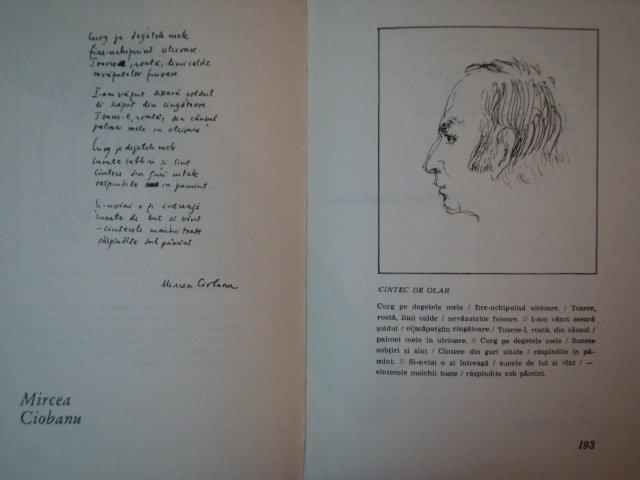 Curg pe degetele mele
fire-nchipuind ulcioare.
Toarce, roată, linii calde
nevăzutelor fuioare.
I-am văzut aseară șoldul
ei scăpat din cingătoare.
Toarce-l, roată, din căușul
palmei mele în ulcioare.
Curg pe degetele mele
Sunete subțiri si sînt
Cîntece din guri uitate
răspîndite în pămînt.
Și-nviai o zi întreagă
sunete de lut si vînt
- cîntecele maichii toate
răspîndite sub pămînt
Mircea Ciobanu
Mircea
Ciobanu
CÎNTEC DE OLAR
Curg pe degetele mele / fire-nchipuind ulcioare. / Toarce,
roată, linii calde / nevăzutelor fuioare. // I-am văzut aseară
șoldul / ei scăpat din cingătoare. / Toarce-l, roată, din căușul /
palmei mele în ulcioare. // Curg pe degetele mele / Sunete
subțiri și sînt / Cîntece din guri uitate / răspîndite în pă-
mînt. // Și-nviai o zi întreagă / sunete de lut si vînt / —
cîntecele maichii toate / răspîndite sub pămînt.
193